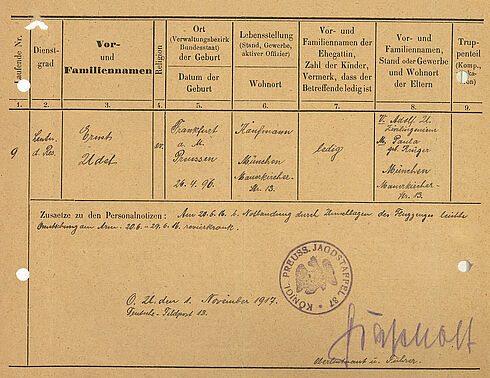 Laufende Nr.
Dienst-
grad
Vor-
und
Familiennamen
Religion
Ort
(Verwaltungsbezirk
Bundesstaat)
der Geburt
Datum der
Geburt
Lebensstellung
(Stand, Gewerbe,
aktiver Offizier)
Wohnort
Vor- und
Familiennamen der
Ehegattin,
Zahl der Kinder,
Vermerk, dass der
Betreffende ledig ist
Vor- und
Familiennamen,
Stand oder Gewerbe
und Wohnort
der Eltern
Trup-
penteil
(Komp.,
1. 2. 3. 4. 5. 6. 7. 8. 9.
9
Leutn.
d. Res.
Ernst
Udet
ev.
Frankfurt
a. M.
Preussen
26.4.96.
Kaufmann
München
Mauerkircher-
str. 13.
ledig
V. Adolf U.
Zivilingenieur
M. Paula
geb. Krüger
München
Mauerkircher-
str. 13.
Zusaetze zu den Personalnotizen: Am 20.6.16. b. Notlandung durch Zerschlagen des Flugzeuges leichte
am Arm. 20.6. - 29.6.16. revierkrank.
O. U. den 1. November 1917.
Deutsche Feldpost 13.
KÖNIGL. PREUSS. JAGDSTAFFEL 37
Oberleutnant u. Führer.